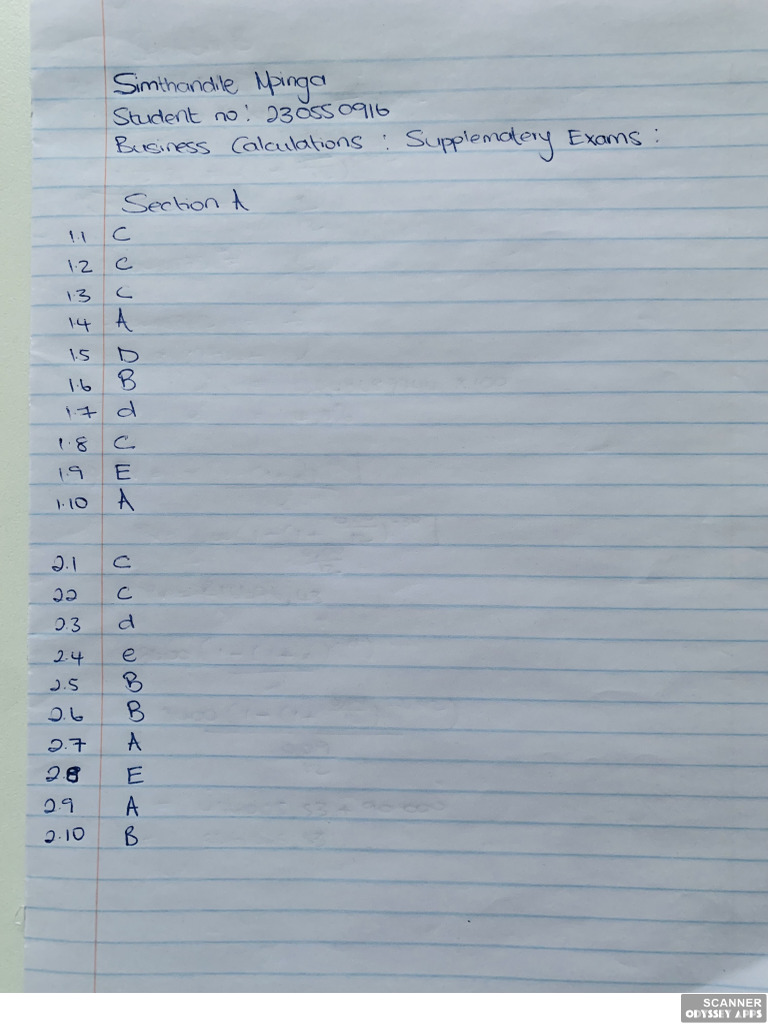 Simthandile Mpinga
Student no: 230550916
Business Calculations : Supplematery Exams :
Section A
1.1 C
1.2 C
1.3 C
1.4 A
1.5 D
1.6 B
1.7 d
1.8 C
1.9 E
1.10 A
2.1 C
2.2 C
2.3 d
2.4 e
2.5 B
2.6 B
2.7 A
2.8 E
2.9 A
2.10 B
SCANNER
ODYSSEY APPS